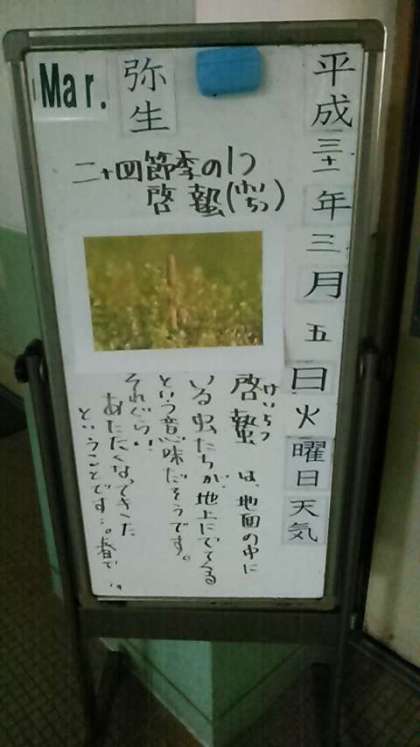 平成三十一年三月五日火曜日天気
弥生
Mar.
二十四節季の1つ
啓蟄(けいちつ)
けいちつ
啓蟄は、地面の中に
いる虫たちが、地上にでてくる
という意味だそうです。
それぐらい
あたたくなってきた
ということです…。春で